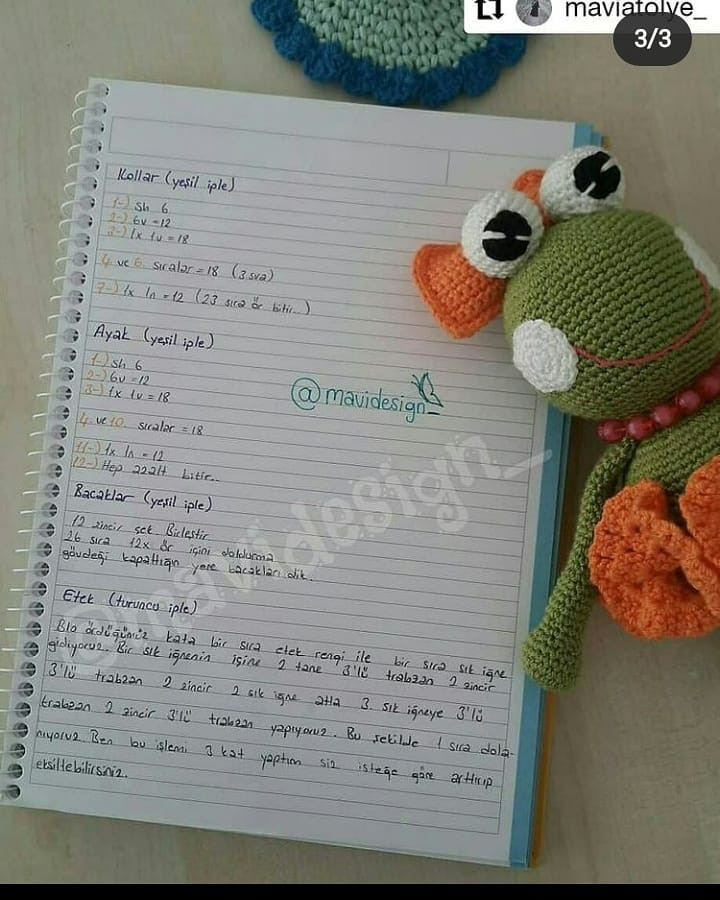 maviatolye_
3/3
Kollar (yeşil iple)
1-) sh 6
2-) 6v = 12
3-) 1x 1v = 18
4 ve 6. sıralar = 18 (3 sıra)
7-) 1x 1n = 12 (23 sıra ör bitir...)
Ayak (yeşil iple)
1-) sh 6
2-) 6v = 12
3-) 1x 1v = 18
4 ve 10. sıralar = 18
11-) 1x 1n = 12
12-) Hep azalt bitir..
@mavidesign_
Bacaklar (yeşil iple)
12 zincir çek Birleştir
26 sıra 12x ör içini doldurma
gövdeği kapattığın yere bacakları dik.
Etek (turuncu iple)
Blo ördüğümüz kata bir sıra etek rengi ile bir sıra sık iğne
gidiyoruz. Bir sık iğnenin içine 2 tane 3'lü trabzan 2 zincir
3'lü trabzan 2 zincir 2 sık iğne atla 3. sık iğneye 3'lü
trabzan 2 zincir 3'lü trabzan yapıyoruz. Bu şekilde 1 sıra dola-
nıyoruz. Ben bu işlemi 3 kat yaptım siz isteğe göre arttırıp
eksiltebilirsiniz.
@mavidesign_